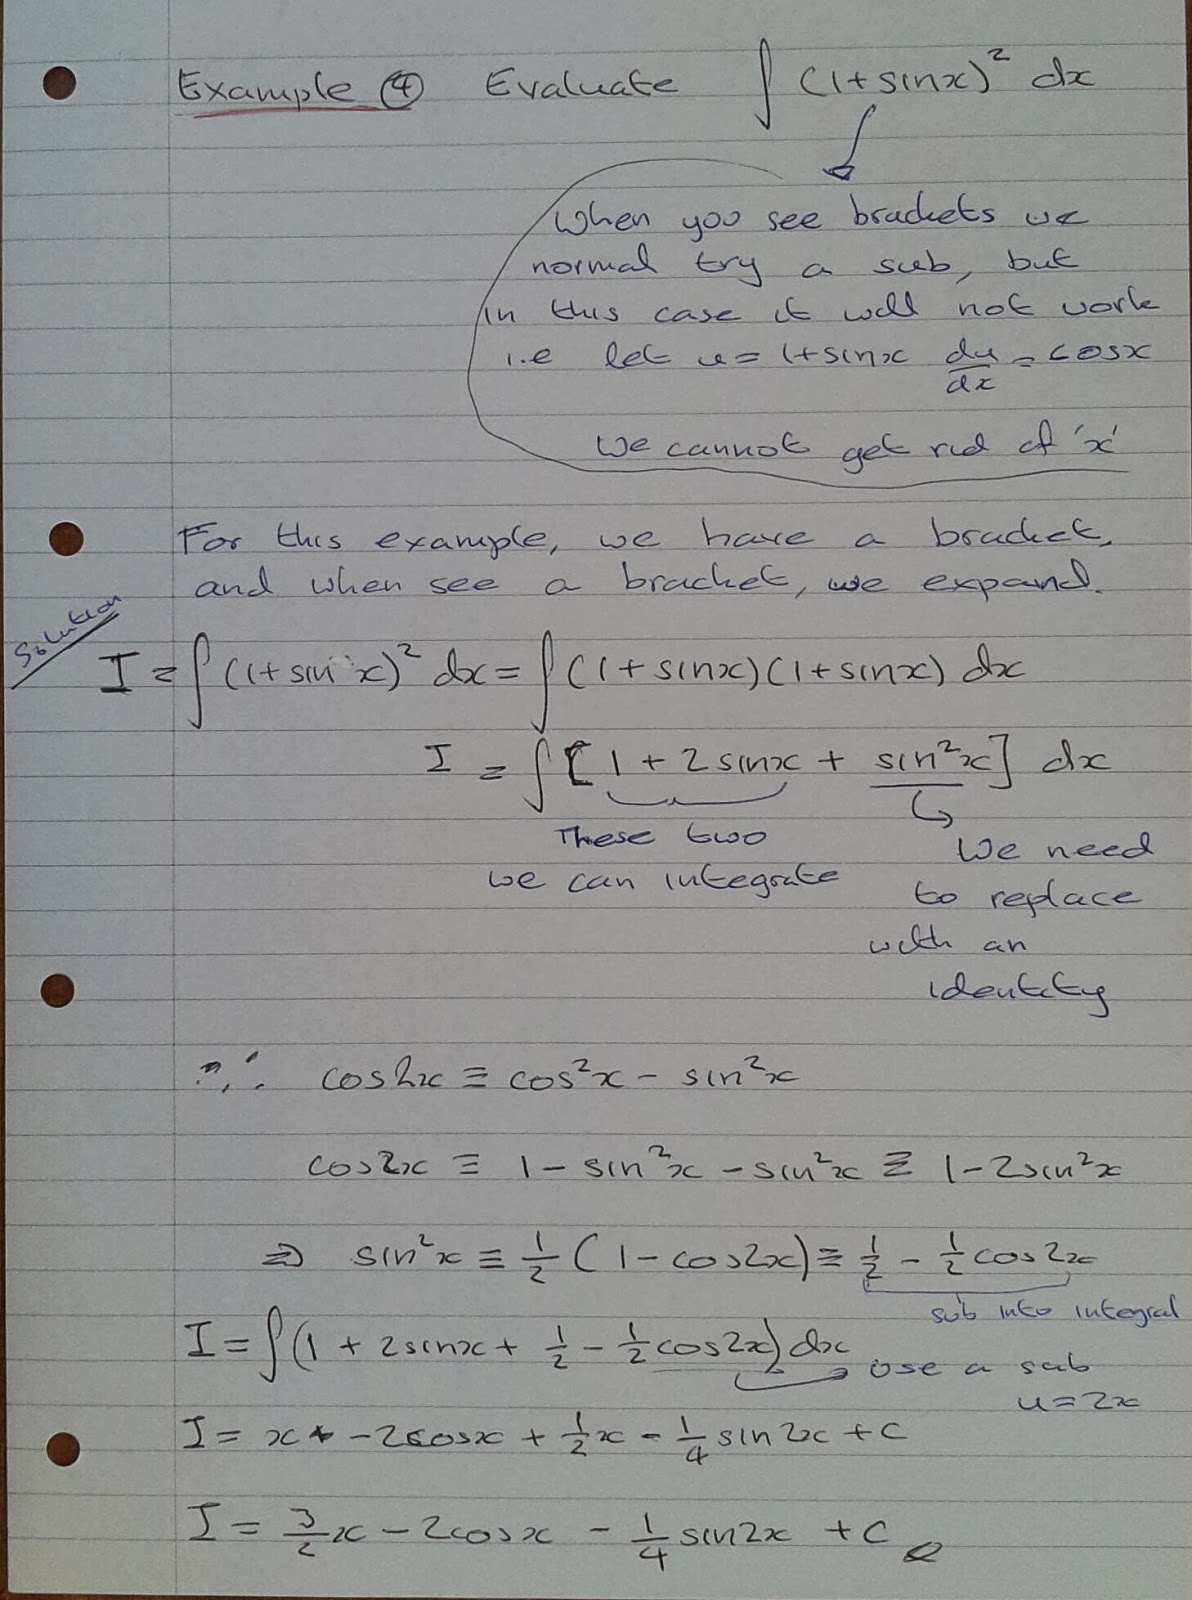 Example ④ Evaluate ∫ (1+sinx)² dx
When you see brackets we
normal try a sub, but
in this case it will not work
i.e let u = 1+sinx du/dx = cosx
We cannot get rid of 'x'
For this example, we have a bracket,
and when see a bracket, we expand.
Solution
I = ∫ (1+sin x)² dx = ∫ (1+sinx)(1+sinx) dx
I = ∫ [1 + 2sinx + sin²x] dx
These two
we can integrate
We need
to replace
with an
identity
∴ cos2x ≡ cos²x - sin²x
cos2x ≡ 1 - sin²x - sin²x ≡ 1 - 2sin²x
⇒ sin²x ≡ 1/2 (1 - cos2x) ≡ 1/2 - 1/2 cos2x
sub into integral
I = ∫ (1 + 2sinx + 1/2 - 1/2 cos2x) dx
use a sub
u = 2x
I = x - 2cosx + 1/2 x - 1/4 sin2x + C
I = 3/2 x - 2cosx - 1/4 sin2x + C